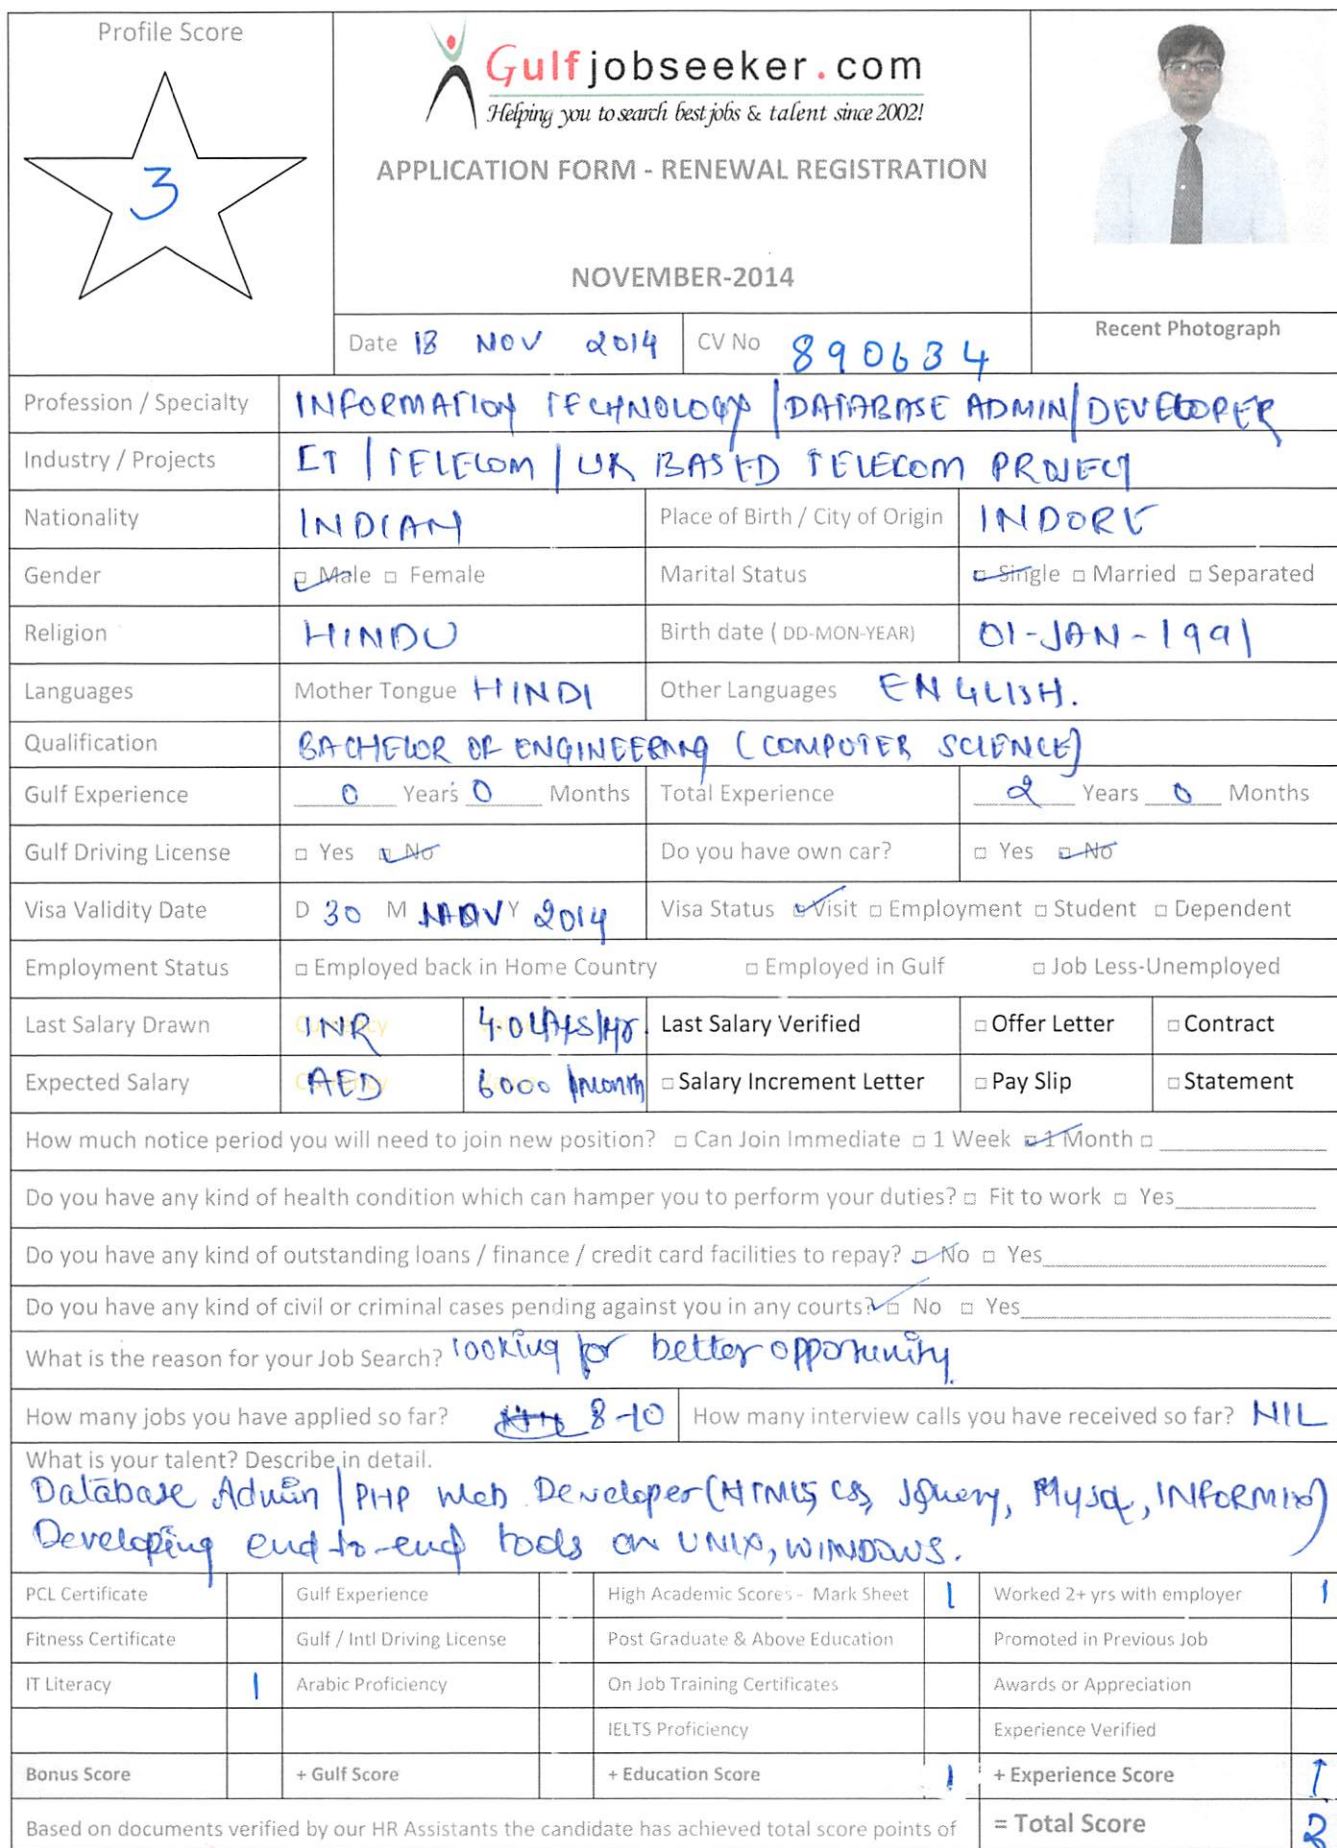 Profile Score
3
Gulfjobseeker.com
Helping you to search best jobs & talent since 2002!
APPLICATION FORM - RENEWAL REGISTRATION
NOVEMBER-2014
Recent Photograph
Date 18 NOV 2014 CV No 890634
Profession / Specialty INFORMATION TECHNOLOGY / DATABASE ADMIN / DEVELOPER
Industry / Projects IT / TELECOM / UK BASED TELECOM PROJECT
Nationality INDIAN Place of Birth / City of Origin INDORE
Gender □ Male □ Female Marital Status □ Single □ Married □ Separated
Religion HINDU Birth date ( DD-MON-YEAR) 01-JAN-1991
Languages Mother Tongue HINDI Other Languages ENGLISH.
Qualification BACHELOR OF ENGINEERING (COMPUTER SCIENCE)
Gulf Experience 0 Years 0 Months Total Experience 2 Years 0 Months
Gulf Driving License □ Yes □ No Do you have own car? □ Yes □ No
Visa Validity Date D 30 M NOV Y 2014 Visa Status □ Visit □ Employment □ Student □ Dependent
Employment Status □ Employed back in Home Country □ Employed in Gulf □ Job Less-Unemployed
Last Salary Drawn INR 4.0 Last Salary Verified □ Offer Letter □ Contract
Expected Salary AED 6000 /month □ Salary Increment Letter □ Pay Slip □ Statement
How much notice period you will need to join new position? □ Can Join Immediate □ 1 Week □ 1 Month □
Do you have any kind of health condition which can hamper you to perform your duties? □ Fit to work □ Yes
Do you have any kind of outstanding loans / finance / credit card facilities to repay? □ No □ Yes
Do you have any kind of civil or criminal cases pending against you in any courts? □ No □ Yes
What is the reason for your Job Search? looking for better opportunity.
How many jobs you have applied so far? 8-10 How many interview calls you have received so far? NIL
What is your talent? Describe in detail.
Database Admin / PHP Web Developer (HTML5, CSS, JQuery, Mysql, INFORMIX)
Developing end-to-end tools on UNIX, WINDOWS.
PCL Certificate Gulf Experience High Academic Scores - Mark Sheet 1 Worked 2+ yrs with employer 1
Fitness Certificate Gulf / Intl Driving License Post Graduate & Above Education Promoted in Previous Job
IT Literacy 1 Arabic Proficiency On Job Training Certificates Awards or Appreciation
IELTS Proficiency Experience Verified
Bonus Score + Gulf Score + Education Score 1 + Experience Score 1
Based on documents verified by our HR Assistants the candidate has achieved total score points of = Total Score 2